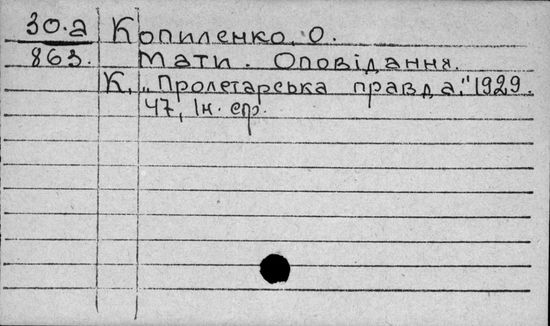 30.а Копиленко, О.
863. Мати. Оповідання.
К. „Пролетарська правда." 1929.
47, Ін. ср.